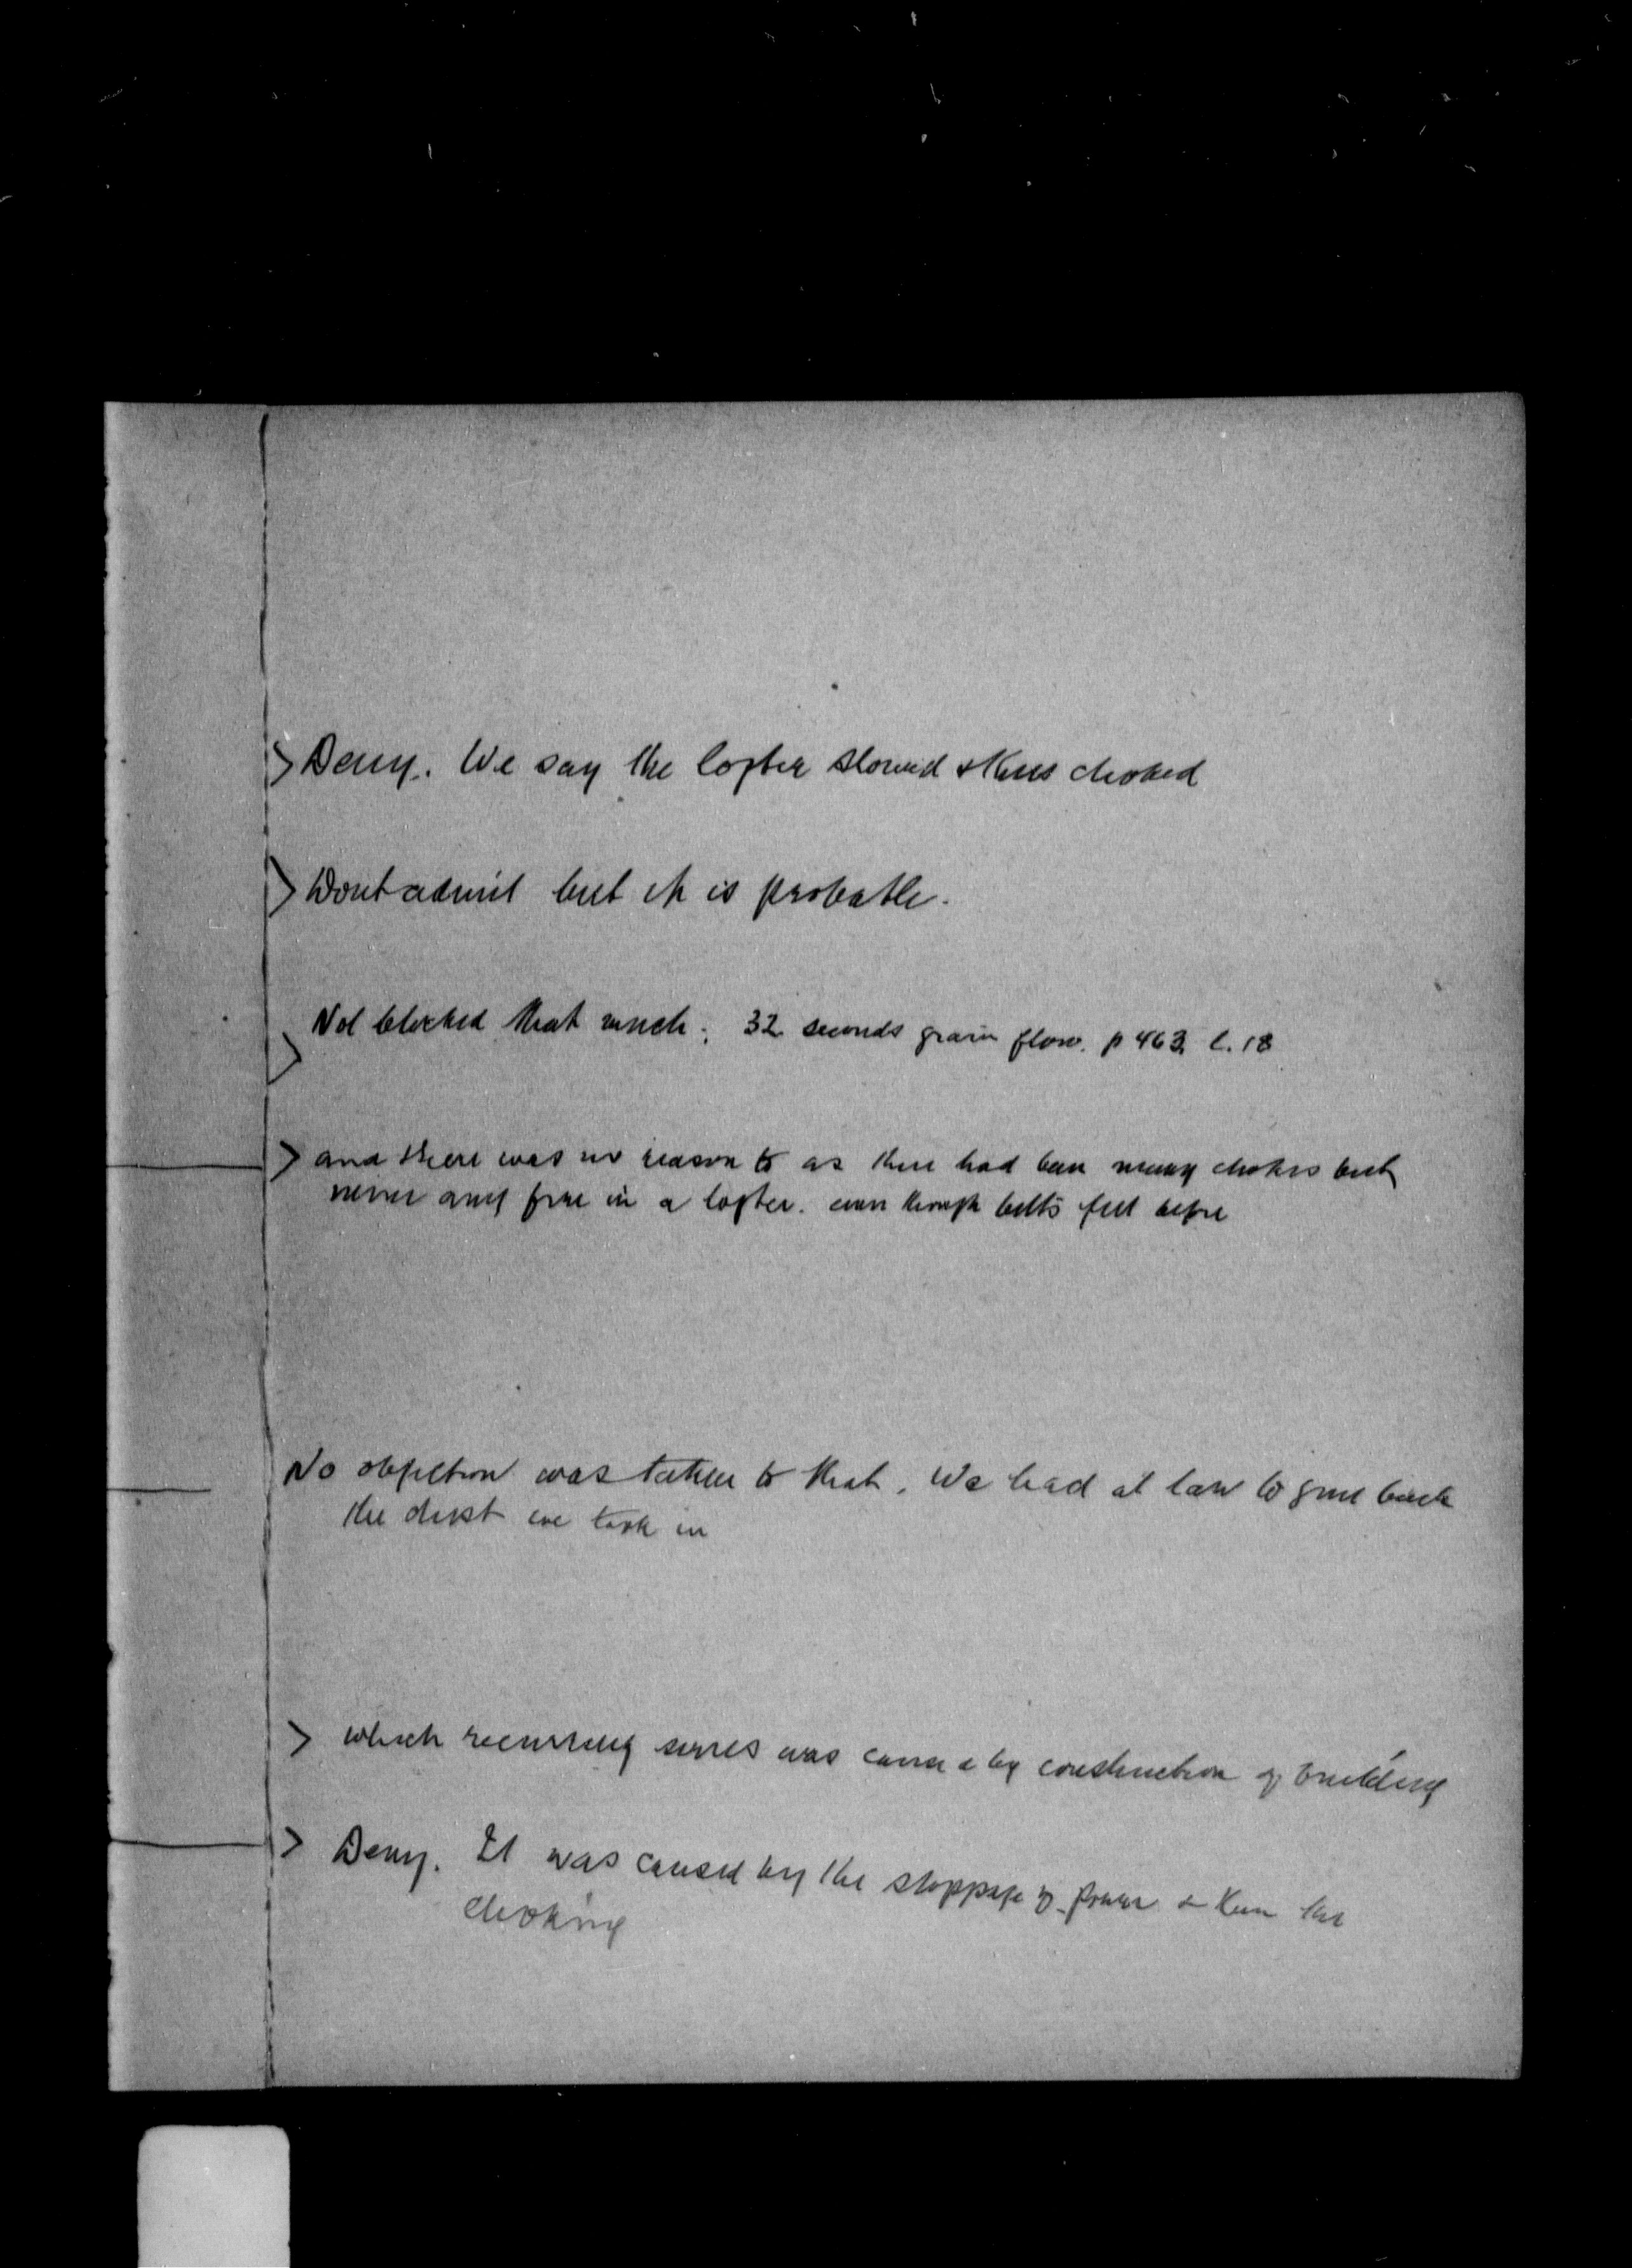 > Deny. We say the lofter slowed & thus choked
> Wont admit but it is probable.
> Not blocked that much; 32 seconds grain flow. p 463 l. 18
> and there was no reason to as there had been many chokes but
never any fire in a lofter. even though belts fell before
No objection was taken to that. We had at law to give back
the dust we took in
> which recurring was caused by construction of building
> Deny. It was caused by the stoppage of power & then the
choking